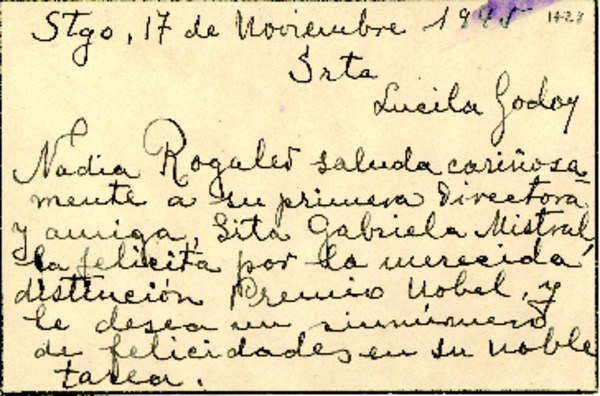 Stgo, 17 de Noviembre 1945 1428
Srta
Lucila Godoy
Nadia Rogaler saluda cariñosa-
mente a su primera directora
y amiga, Srta Gabriela Mistral,
la felicita por la merecida
distinción Premio Nobel, y
le desea un sinnúmero
de felicidades en su noble
tarea.